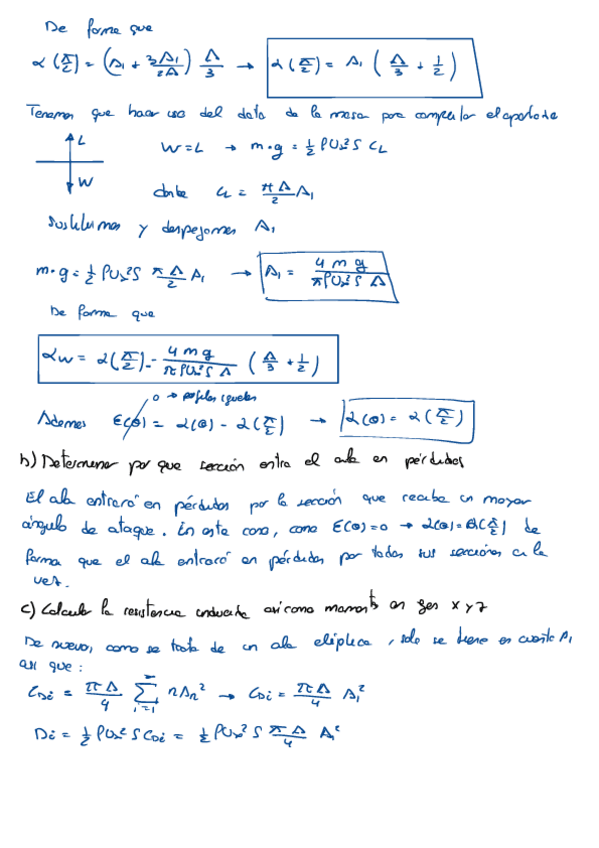 De forma que
α(π/2) = (A₁ + 3A₁/2Λ) Λ/3 → α(π/2) = A₁ (Λ/3 + 1/2)
Tenemos que hacer uso del dato de la masa para completar el apartado
L
W = L → m·g = 1/2 ρU∞²S CL
W
donde CL = πΛ/2 A₁
Sustituimos y despejamos A₁
m·g = 1/2 ρU∞²S πΛ/2 A₁ → A₁ = 4mg / πρU∞²SΛ
De forma que
αw = α(π/2) = 4mg / πρU∞²SΛ (Λ/3 + 1/2)
0 → perfiles iguales
Ademas ε(θ) = α(θ) - α(π/2) → α(θ) = α(π/2)
b) Determinar por que sección entra el ala en pérdidas
El ala entrará en pérdidas por la sección que reciba un mayor
ángulo de ataque. En este caso, como ε(θ)=0 → α(θ)=α(π/2) de
forma que el ala entrará en pérdidas por todas sus secciones a la
vez.
c) Calcular la resistencia inducida así como momentos en ejes x y z
De nuevo, como se trata de un ala elíptica, solo se tiene en cuenta A₁
así que:
CDi = πΛ/4 ∑ i=1 ∞ nAn² → CDi = πΛ/4 A₁²
Di = 1/2 ρU∞² S CDi = 1/2 ρU∞² S πΛ/4 A₁²